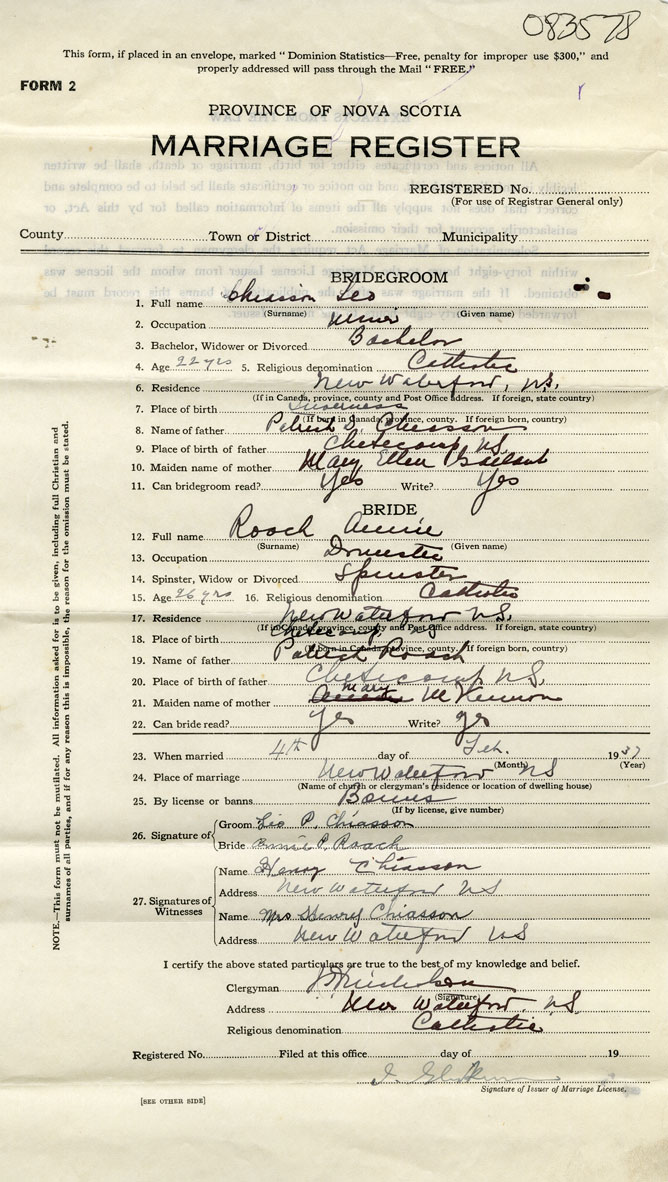 083578
This form, if placed in an envelope, marked "Dominion Statistics—Free, penalty for improper use $300," and
properly addressed will pass through the Mail "FREE."
FORM 2
PROVINCE OF NOVA SCOTIA
MARRIAGE REGISTER
REGISTERED No.
(For use of Registrar General only)
County Town or District Municipality
BRIDEGROOM
1. Full name Chiasson Leo
(Surname) (Given name)
2. Occupation Miner
3. Bachelor, Widower or Divorced Bachelor
4. Age 22 yrs 5. Religious denomination Catholic
6. Residence New Waterford, N.S.
(If in Canada, province, county and Post Office address. If foreign, state country)
7. Place of birth Inverness
(If born in Canada, province, county. If foreign born, country)
8. Name of father Patrick J. Chiasson
9. Place of birth of father Cheticamp N.S.
10. Maiden name of mother Mary Ellen Gallant
11. Can bridegroom read? Yes Write? Yes
BRIDE
12. Full name Roach Annie
(Surname) (Given name)
13. Occupation Domestic
14. Spinster, Widow or Divorced Spinster
15. Age 26 yrs 16. Religious denomination Catholic
17. Residence New Waterford N.S.
(If in Canada, province, county and Post Office address. If foreign, state country)
18. Place of birth Cheticamp, N.S.
(If born in Canada, province, county. If foreign born, country)
19. Name of father Patrick Roach
20. Place of birth of father Cheticamp N.S.
21. Maiden name of mother Mary McKinnon
22. Can bride read? Yes Write? Yes
23. When married 4th day of Feb. 1937
(Month) (Year)
24. Place of marriage New Waterford NS
(Name of church or clergyman's residence or location of dwelling house)
25. By license or banns Banns
(If by license, give number)
26. Signature of
Groom Leo P. Chiasson
Bride Annie P. Roach
27. Signatures of Witnesses
Name Henry Chiasson
Address New Waterford NS
Name Mrs Henry Chiasson
Address New Waterford NS
I certify the above stated particulars are true to the best of my knowledge and belief.
Clergyman
(Signature)
Address New Waterford, N.S.
Religious denomination Catholic
Registered No. Filed at this office day of 19
Signature of Issuer of Marriage License.
[SEE OTHER SIDE]
NOTE.—This form must not be mutilated. All information asked for is to be given, including full Christian and
surnames of all parties, and if for any reason this is impossible, the reason for the omission must be stated.